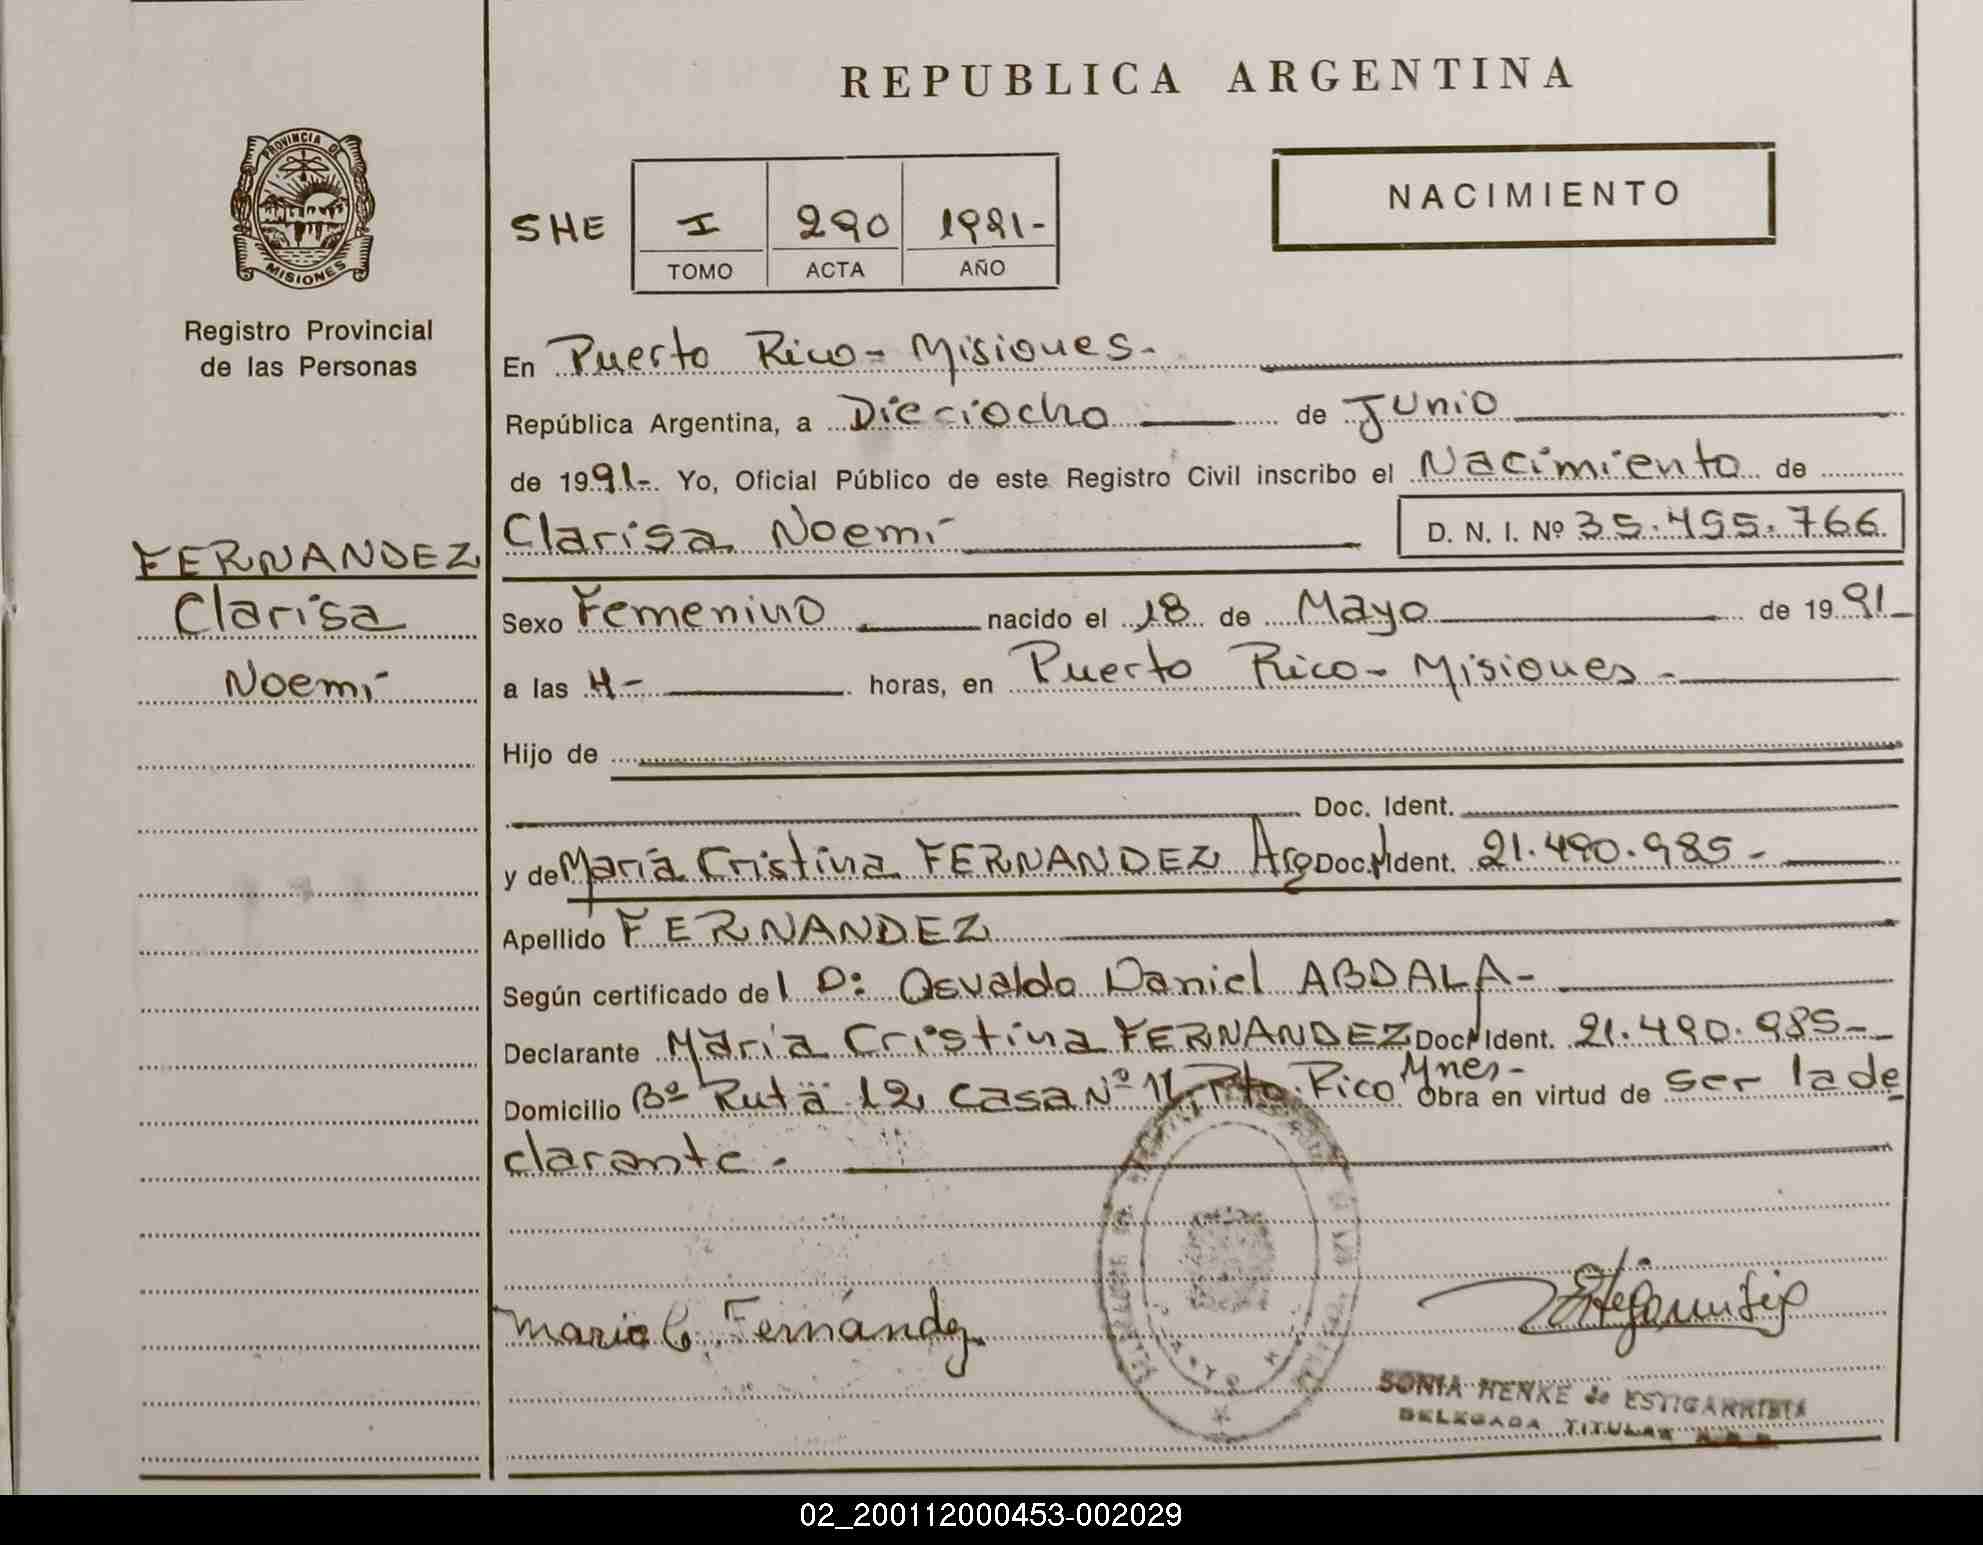 REPUBLICA ARGENTINA
PROVINCIA DE
MISIONES
Registro Provincial
de las Personas
NACIMIENTO
SHE I 290 1991-
TOMO ACTA AÑO
En Puerto Rico - Misiones.-
República Argentina, a Dieciocho de Junio
de 1991-. Yo, Oficial Público de este Registro Civil inscribo el Nacimiento de
Clarisa Noemí D. N. I. Nº 35.455.766
FERNANDEZ
Clarisa
Noemí
Sexo Femenino nacido el 18 de Mayo de 1991-
a las 4- horas, en Puerto Rico - Misiones -
Hijo de
Doc. Ident.
y de María Cristina FERNANDEZ Arg Doc. Ident. 21.490.985-
Apellido FERNANDEZ
Según certificado del D: Osvaldo Daniel ABDALA-
Declarante María Cristina FERNANDEZ Doc. Ident. 21.490.985-
Domicilio Bº Ruta 12, Casa Nº 11, Pto. Rico Mnes- Obra en virtud de ser la de
clarante.-
Maria C. Fernández
SONIA HENKE de ESTIGARRIBIA
DELEGADA TITULAR
02_200112000453-002029